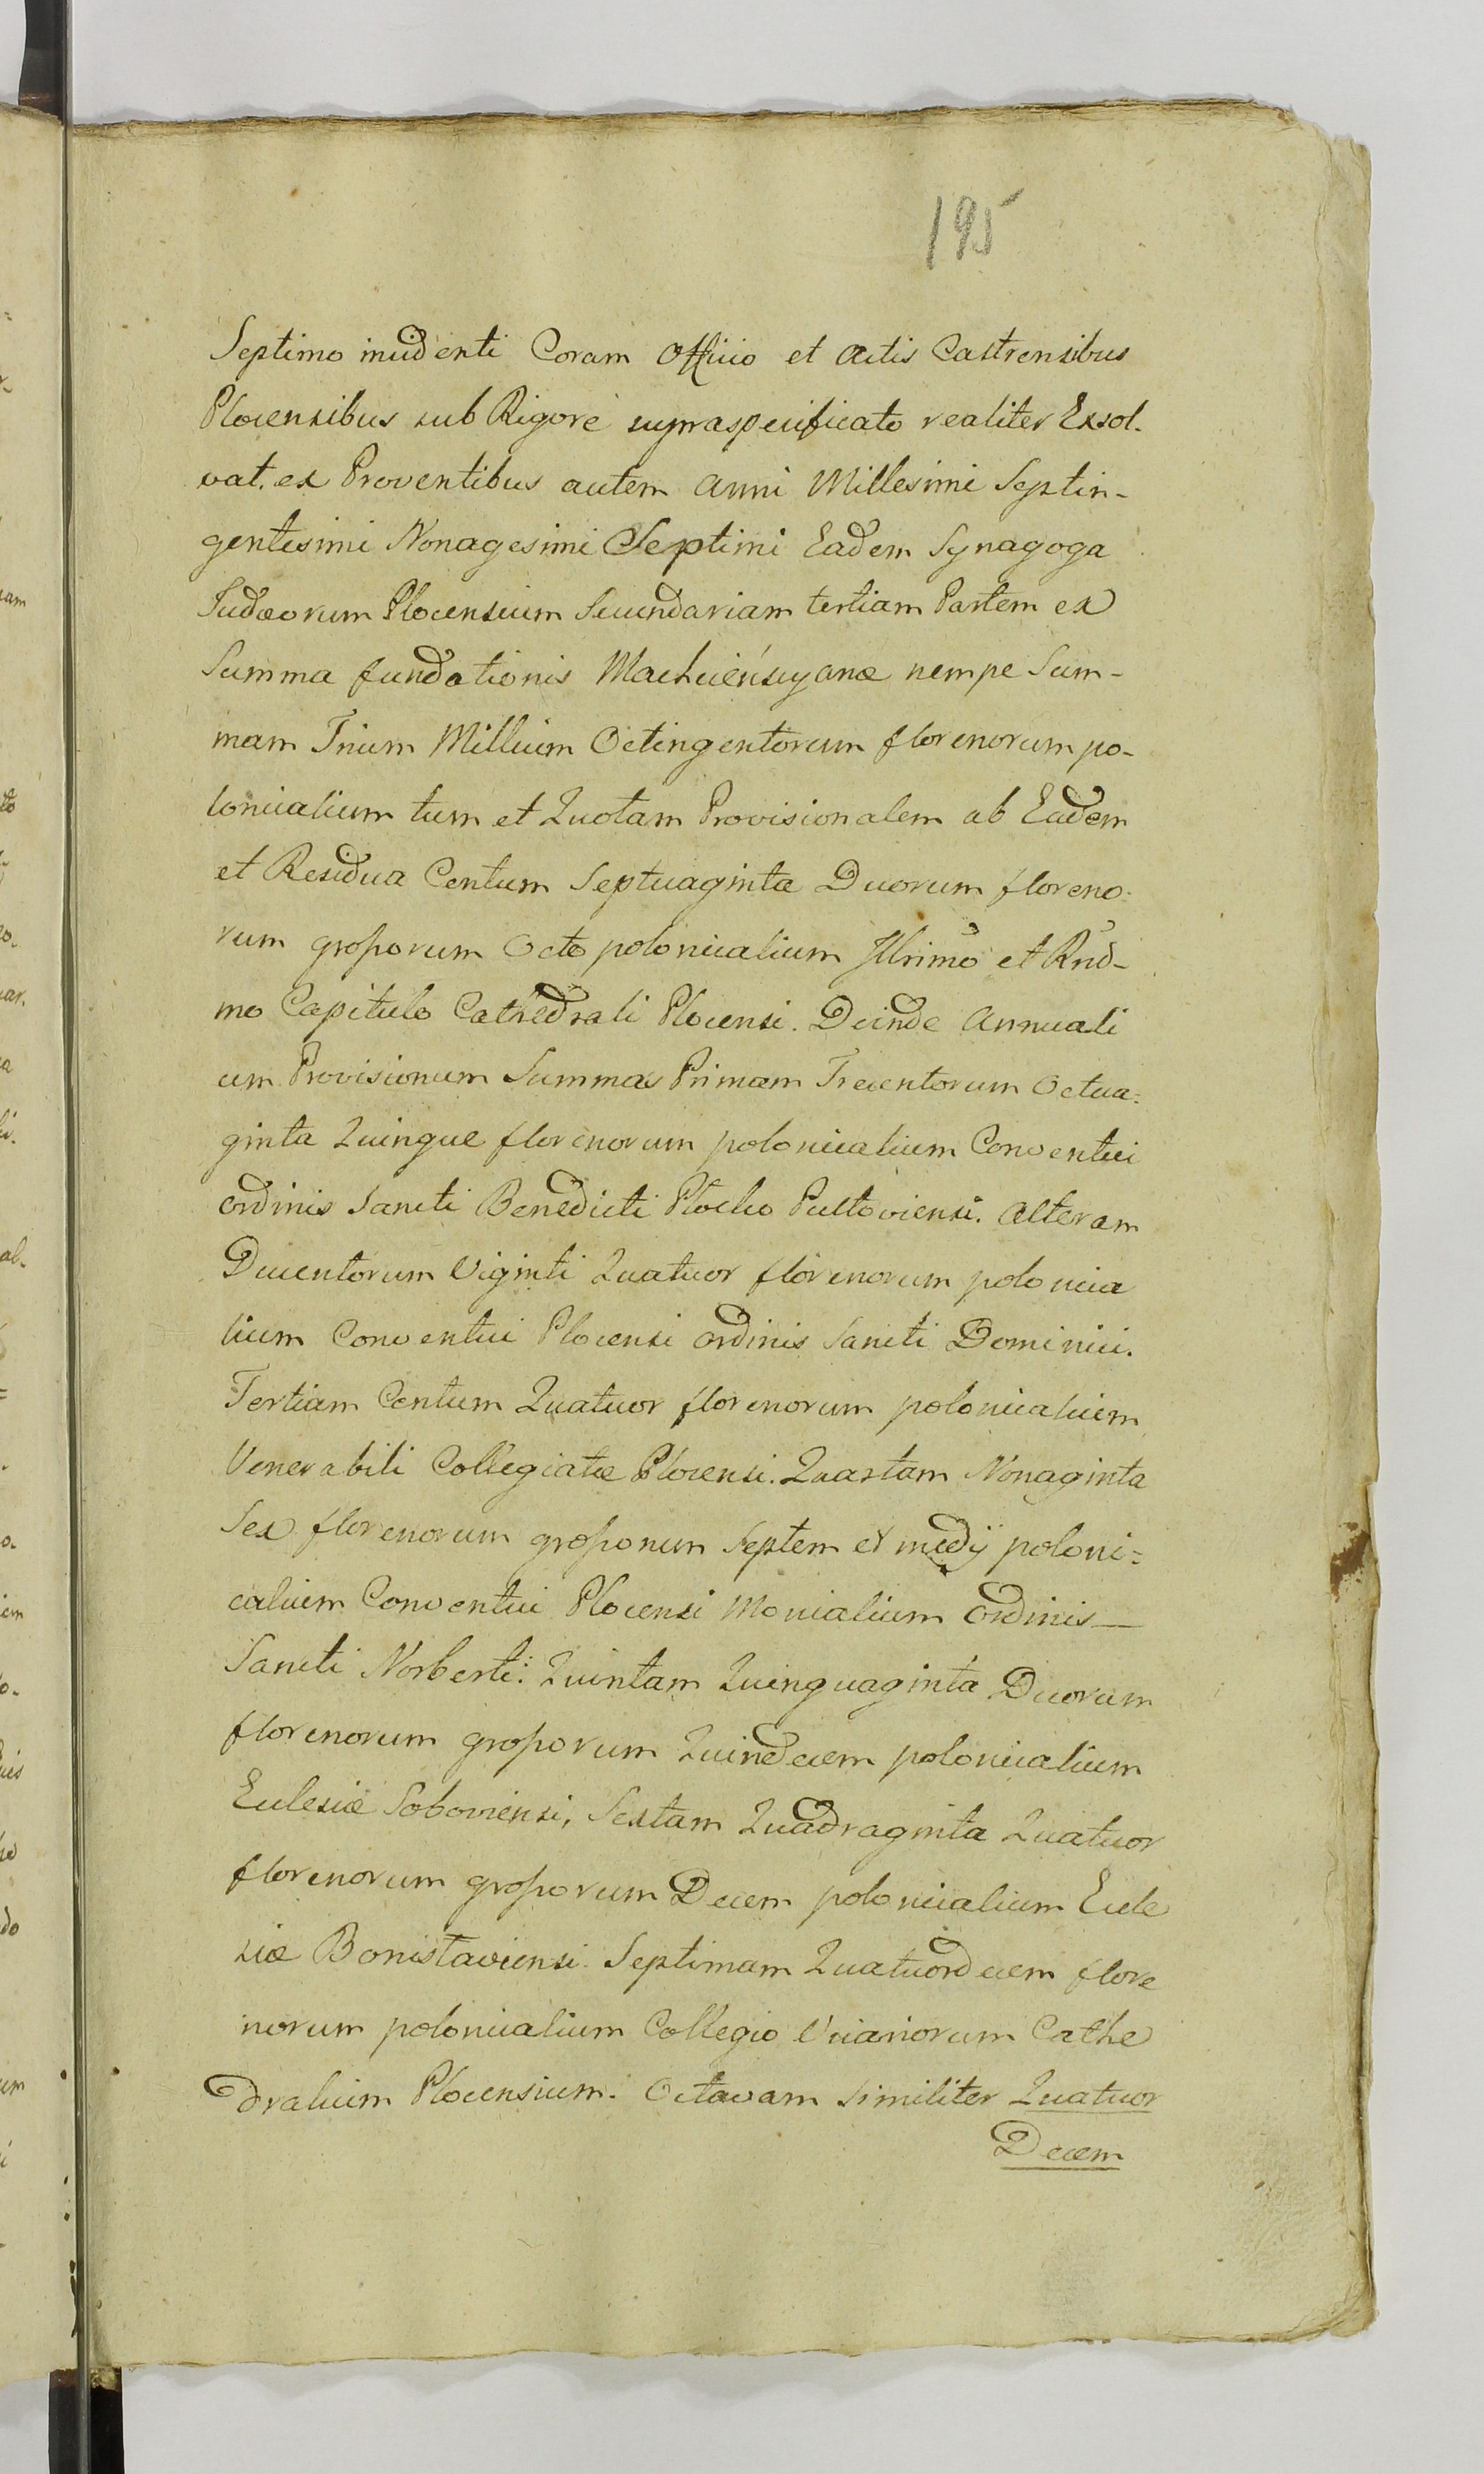 195
Septimo incidenti Coram Officio et Actis Castrensibus
Plocensibus sub Rigore supraspecificato realiter Exsol.
vat. ex Proventibus autem anni Millesimi Septin-
gentesimi Nonagesimi Septimi Eadem Synagoga
Judæorum Plocensium Secundariam tertiam Partem ex
Summa fundationis Machcieńscyanæ nempe Sum-
mam Trium Millium Octingentorum florenorum po-
lonicalium tum et Quotam Provisionalem ab Eadem
et Residua Centum Septuaginta Duorum floreno-
rum grossorum Octo polonicalium Illrimo et Rnd-
mo Capitulo Cathedrali Plocensi. Deinde Annuali
um Provisionum Summas Primam Trecentorum Octua-
ginta Quinque florenorum polonicalium Conventui
Ordinis Sancti Benedicti Plocko Pultoviensi. Alteram
Ducentorum Viginti Quatuor florenorum polonica
lium Conventui Plocensi Ordinis Sancti Dominici.
Tertiam Centum Quatuor florenorum polonicalium
Venerabili Collegiatæ Plocensi. Quartam Nonaginta
Sex florenorum grossorum Septem et medij poloni=
calium Conventui Plocensi Monialium Ordinis
Sancti Norberti. Quintam Quinquaginta Duorum
florenorum grossorum Quindecem polonicalium
Ecclesiæ Soboviensi, Sextam Quadraginta Quatuor
florenorum grossorum Decem polonicalium Eccle
siæ Bonislaviensi. Septimam Quatuordecem flore
norum polonicalium Collegio Vicariorum Cathe
dralium Plocensium. Octavam similiter Quatuor
Decem